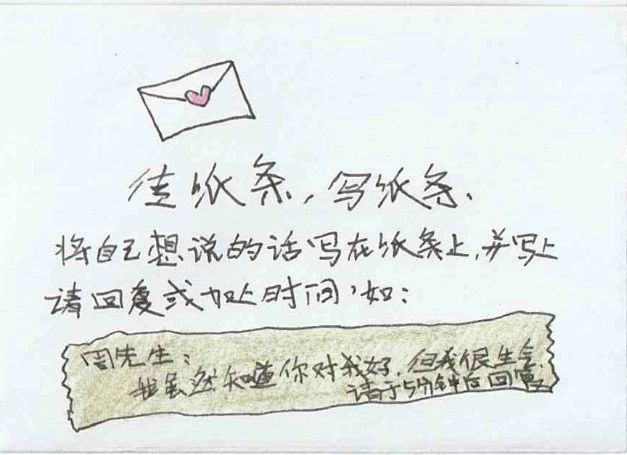 传纸条,写纸条.
将自己想说的话写在纸条上,并写上
请回复或加上时间,如:
周先生:
我虽然知道你对我好,但我很生气.
请于5分钟后回复